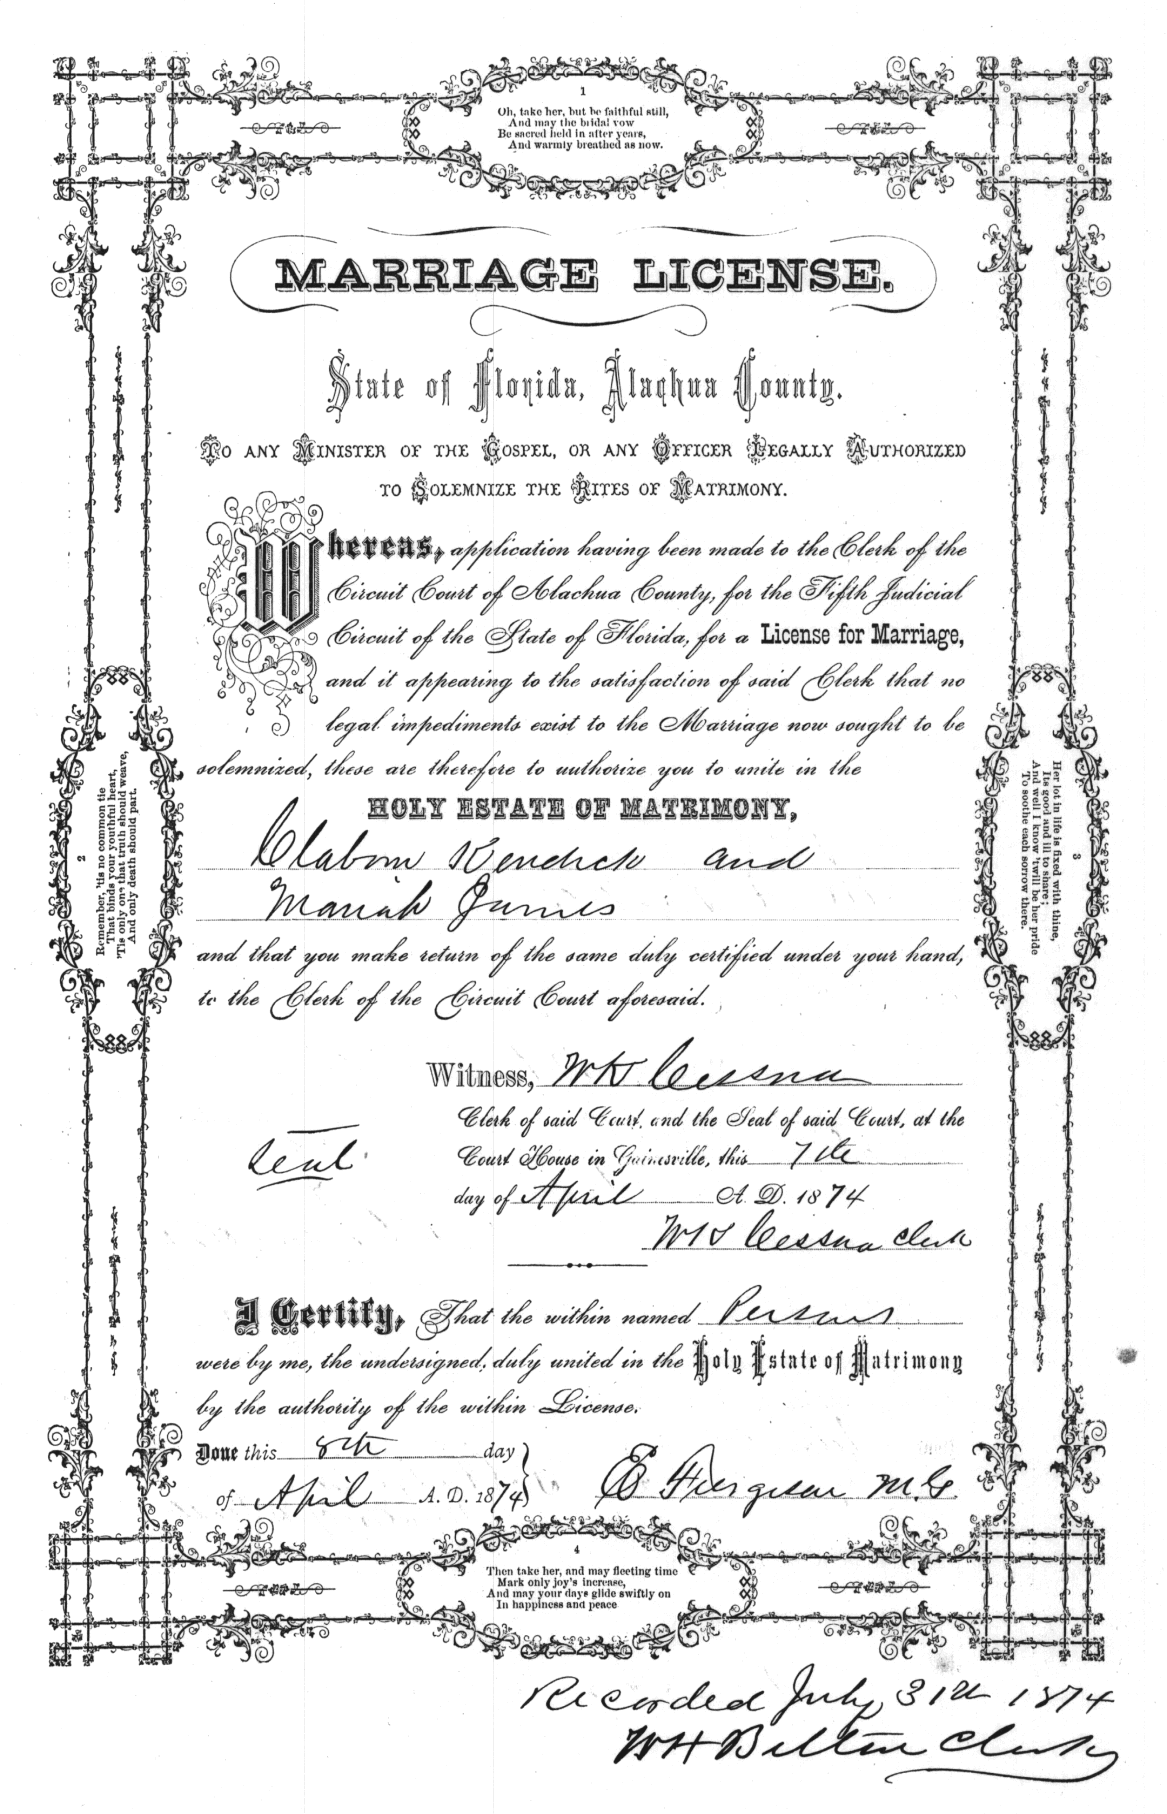 1
Oh, take her, but be faithful still,
And may the bridal vow
Be sacred held in after years,
And warmly breathed as now.
MARRIAGE LICENSE.
State of Florida, Alachua County.
To any Minister of the Gospel, or any Officer Legally Authorized
to Solemnize the Rites of Matrimony.
Whereas, application having been made to the Clerk of the
Circuit Court of Alachua County, for the Fifth Judicial
Circuit of the State of Florida, for a License for Marriage,
and it appearing to the satisfaction of said Clerk that no
legal impediments exist to the Marriage now sought to be
solemnized, these are therefore to authorize you to unite in the
HOLY ESTATE OF MATRIMONY,
Claborn Kendrick and
Mariah James
and that you make return of the same duly certified under your hand,
to the Clerk of the Circuit Court aforesaid.
2
Remember, 'tis no common tie
That binds your youthful heart,
'Tis only one that truth should weave,
And only death should part.
3
Her lot in life is fixed with thine,
Its good and ill to share;
And well I know 'twill be her pride
To soothe each sorrow there.
Witness, Cessna
Clerk of said Court, and the Seal of said Court, at the
Seal
Court House in Gainesville, this 7th
day of April A. D. 1874
Cessna Clerk
I Certify, That the within named Persons
were by me, the undersigned, duly united in the Holy Estate of Matrimony
by the authority of the within License.
Done this 8th day
of April A. D. 1874
E Ferguson M.G.
4
Then take her, and may fleeting time
Mark only joy's increase,
And may your days glide swiftly on
In happiness and peace
Recorded July 31st 1874
WH Belton Clerk